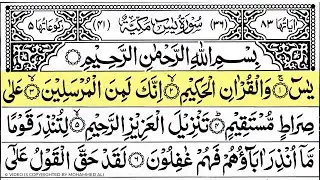 اٰیاتھا ٨٣ (٣٦) سُوْرَةُ يٰسٓ مَكِّيَّةٌ (٤١) رکوعاتھا ٥
بِسْمِ اللّٰهِ الرَّحْمٰنِ الرَّحِيْمِ
يٰسٓ ۝١ وَالْقُرْاٰنِ الْحَكِيْمِ ۝٢ اِنَّكَ لَمِنَ الْمُرْسَلِيْنَ ۝٣ عَلٰى
صِرَاطٍ مُّسْتَقِيْمٍ ۝٤ تَنْزِيْلَ الْعَزِيْزِ الرَّحِيْمِ ۝٥ لِتُنْذِرَ قَوْمًا
مَّاۤ اُنْذِرَ اٰبَآؤُهُمْ فَهُمْ غٰفِلُوْنَ ۝٦ لَقَدْ حَقَّ الْقَوْلُ عَلٰٓى
COPYRIGHTED BY MOHAMMED ALI